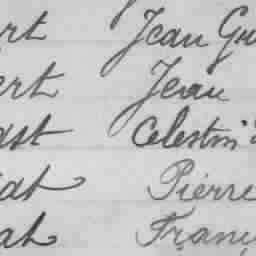 rt Jean Gu
ert Jean
ast Celestin
dt Pierre
ah Franç